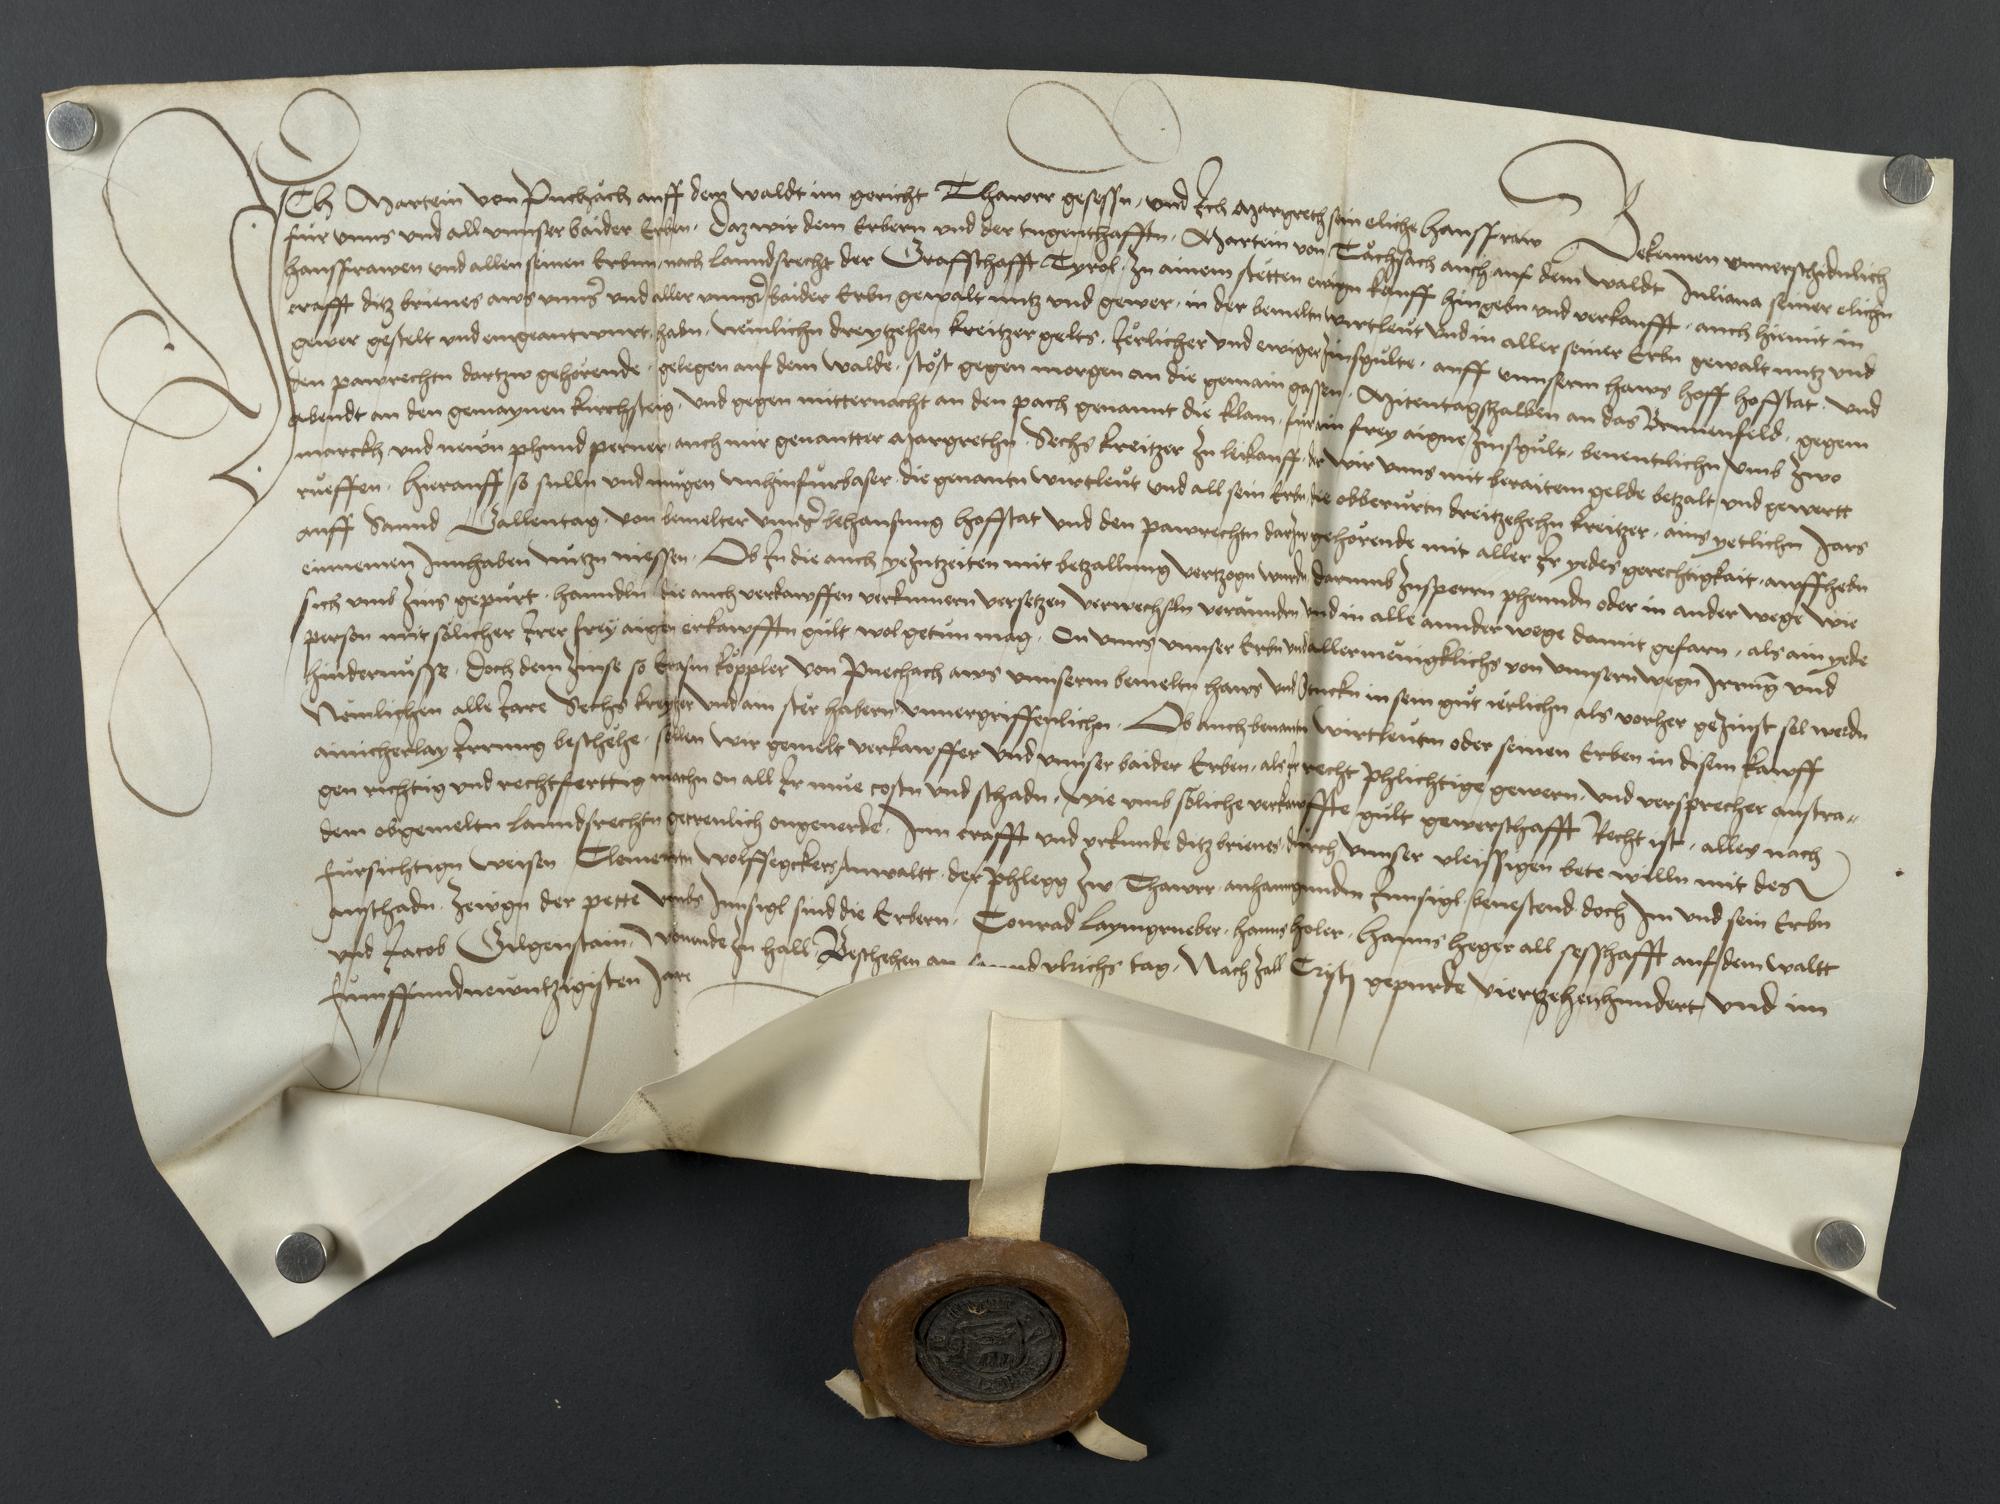 Ich Martein von Puchach auff dem waldt im gericht Thawrr gesessn, vnd Ich Margreth sein eliche hausfraw Bekennen vnuerschidnlich
für vnns vnd all vnnser baider Erben. Daz wir dem Erbern vnd der tugenthafftn. Martein von auch auf dem waldt Juliana seiner elichn
hausfrawen vnd allen seinen Erbnn, nach lanndsrecht der Graffschafft Tyrol. Zu ainem stetten ewign kauff hingebn vnd verkaufft. auch hiemit in
crafft ditz brieues aws vnnser vnd aller vnnser baider Erbn gewalt nutz vnd gewer, in der bemeltn wirtleut vnd in aller seiner Erbn gewalt nutz vnd
gewer gestelt vnd eingeantwurt, habn. Nemlichn dreytzehen kreitzer gelts. Jerlicher vnd ewiger Zinsgulte. auff vnnserm haws hoff hoffstat. vnd
den pawrechtn dartzw gehorende. gelegen auf dem walde. stost gegen morgen an die gemain gassen. Mitentagshalben an das Brunnenfeld. gegem
abendt an den gemaynen kirchsteig. vnd gegen mitternacht an den pach genannt die klam, für ain frey aigne Zinsgult, benentlichn vmb Zwo
marckh vnd newn phund perner, auch mir genantter Margrethn. Sechs kreitzer Zu leikauff. der wir vnns mit beraitem gelde betzalt vnd gewertt
rueffen. Hierauff so sulln vnd mugen nuhinfurbaser. die genantn wirtleut vnd all sein Erbn, die obberurtn dreitzehehn kreitzer. ains yetlichn Jars
auff Sannd Gallentag. von bemelter vnnser behausung hoffstat vnd den pawrechtn darzw gehorende mit aller Jr yedes gerechtigkait. auffhebn
einnemen Innhaben nutzn niessen. Ob Jn die auch yeZutzeiten mit betzallung vertzogn wurdn, darumb Zusperrn phenndn oder in ander wege wie
sich vmb Zins gepurt. hanndln die auch verkawffen verkumern versetzen verwechsln verannden vnd in alle annder wege damit gefarn, als ain yede
person mit solicher Jrer frey aigen erkawfftn gult wol getun mag. On vnns vnnser Erbn vnd allermenigklichs von vnnsern wegn Jrrung vnd
hindernusse. Doch dem Zinse so Erasm koppler von Puechach aws vnnserm bemeltn haws vnd stuckn in sein gut ierlichn als vorher geZinst sol werdn
Nemlichen alle Jare Sechs kreytzer vnd ain ster habern vnuergriffenlichn. Ob auch benantn wirtleutn oder seinen Erben in disem kawff
ainicherlay Jrrung beschehe. sollen wir gemelt verkawffer vnd vnnser baider Erben, als Jr recht phlichtige gewern. vnd versprecher austra-
gen richtig vnd rechtferttig machn on all Jr mue costn vnd schadn. wie vmb soliche verkawffte gult gewerschafft Recht ist. alles nach
dem obgemeltn lanndsrechtn getreulich ongeuerde. Inn crafft vnd vrkunde ditz brieues durch vnnser vleissigen bete willn mit des
fursichtign weisen Clementn Wolffsegckers, Anwaltt. der phlegg Zw Thawrr, anhanngundm Innsigl beuestend. doch Jm vnd sein Erbn
anschadn. Zewgn der pette vmbs Innsigl sind die Erbern. Conrad Laymgrueber, hanns holer. Hanns Heger all sesshafft auf dem waltt
vnd Jacob Gilgenstain, wonende Zu hall. Beschehen an vlrichs tag. Nach Zall Cristj gepurde viertzehenhundert vnd im
funffundnewntzigisten Jare